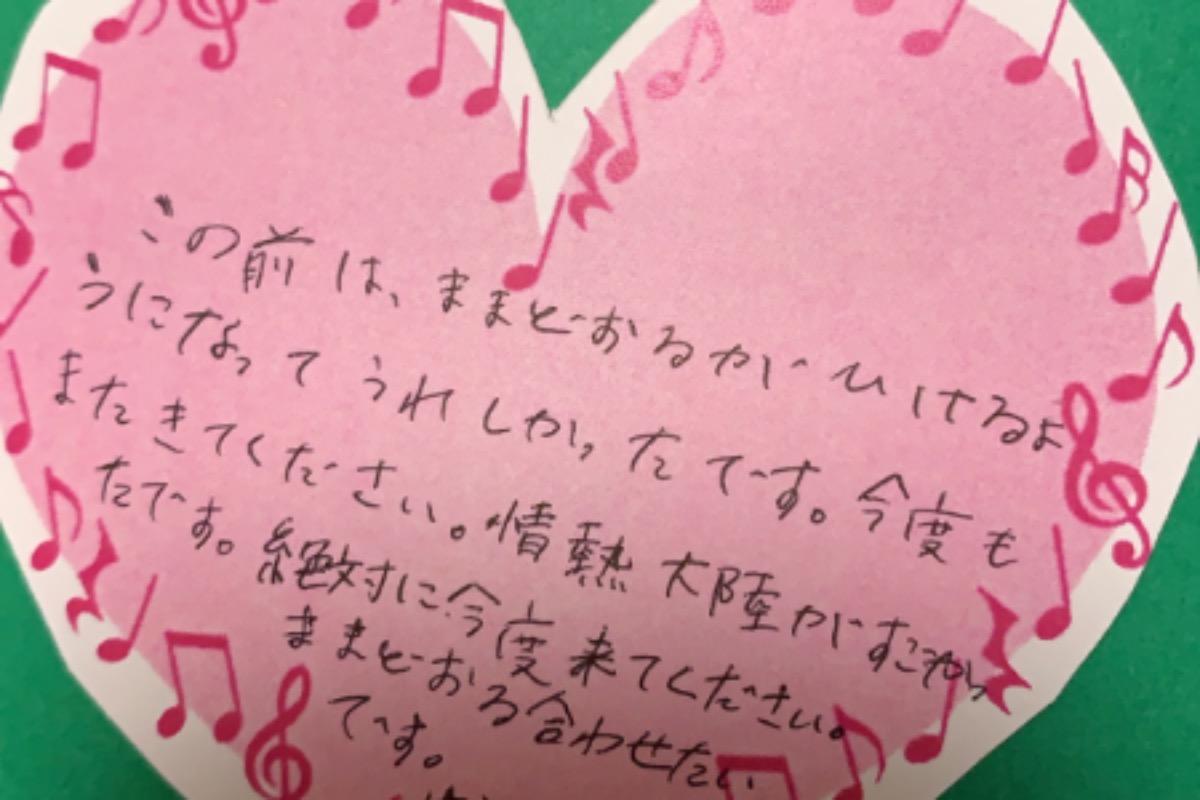 この前は、ままどおるがひけるよ
うになってうれしかったです。今度も
またきてください。情熱大陸がすごかっ
たです。絶対に今度来てください。
ままどおる合わせたい
です。